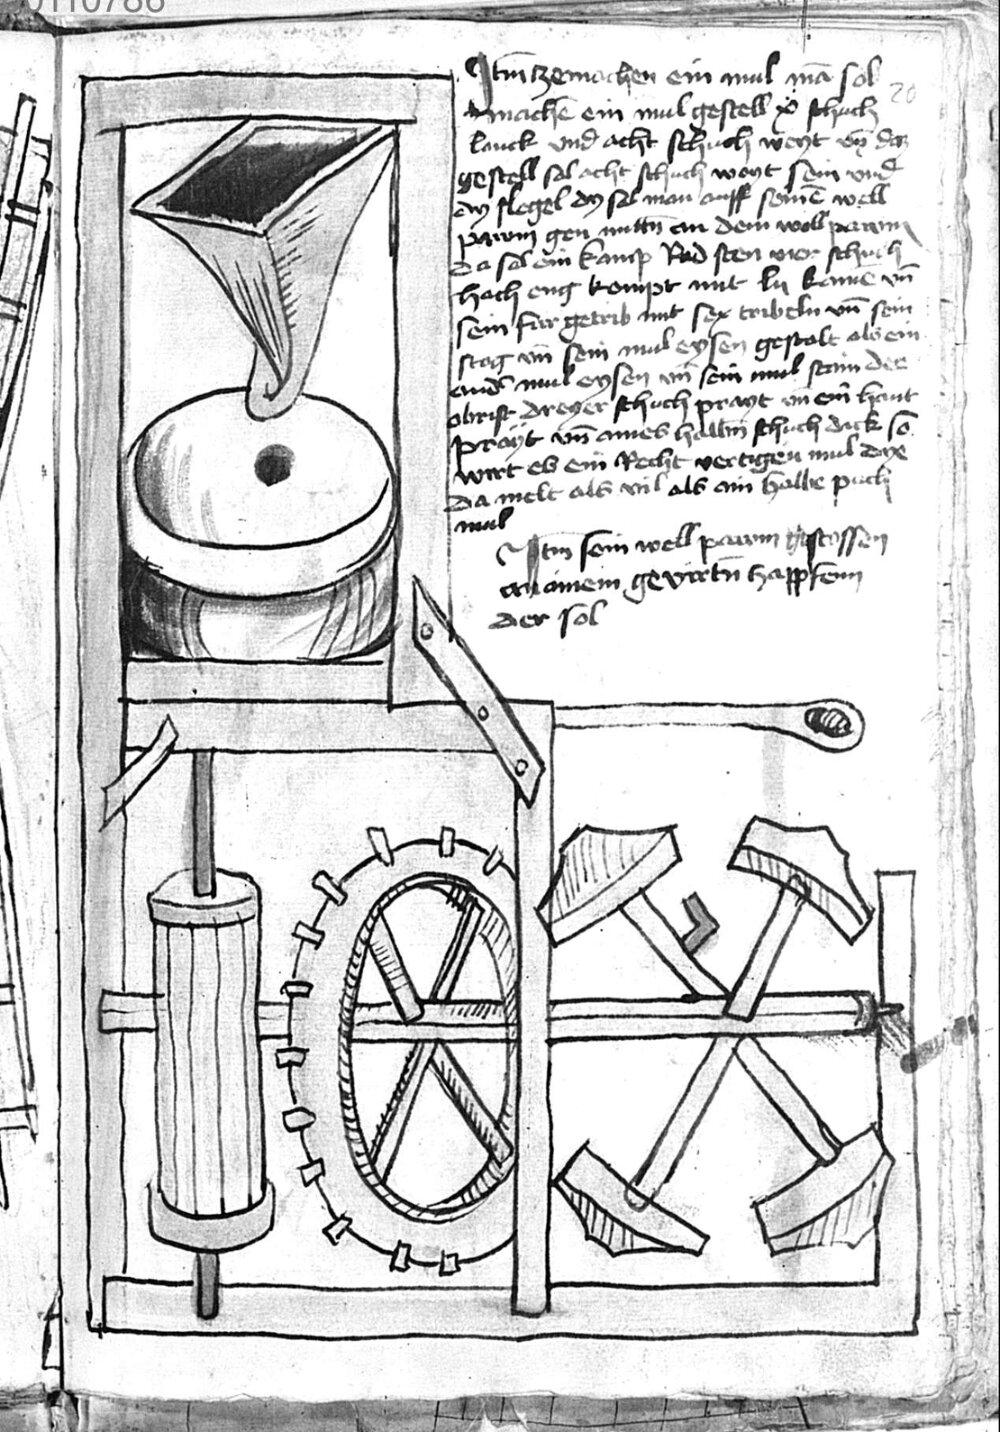 0110786
20
Itm zemachen ein mul man sol
machen ein mul gestell xv schuch
lanck vnd acht schuch weyt vn das
gestell sol acht schuch weyt sein vnd
dy flegel dy sol man auff seinen well
pawm gen mittn an dem wellpawm
da sol ein kamp Rad sten vier schuch
hoch eng kompt mit lii kamē vn
sein fur getrib mit sex tribeln vn sein
stag vn sein mul eysen gestalt als ein
ander mul eysen vn sein mul stain der
obrist dreyer schuch prayt vn ein hant
prayt vn aines halbm schuch dick so
wirt es ein Recht vertigen mul dye
da melt als vil als ain halbe pach
mul
Itm sein well pawm gestossen
an ainem gevirtn happfenn
der sol